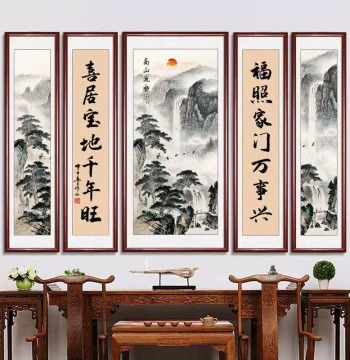 高山流水
福照家门万事兴
喜居宝地千年旺